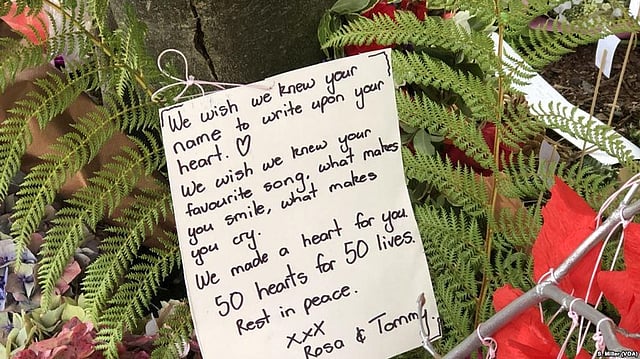 We wish we knew your
name to write upon your
heart. ♡
We wish we knew your
favourite song, what makes
you smile, what makes
you cry.
We made a heart for you.
50 hearts for 50 lives.
Rest in peace.
xxx
Rosa & Tommy.
S. Miller /VOA